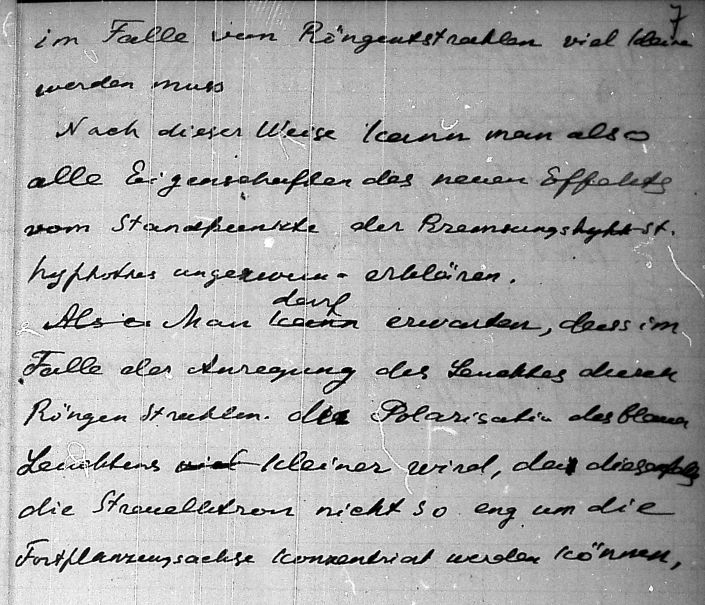 7
im Falle von Röngentstrahlen viel kleine
werden muss
Nach dieser Weise kann man also
alle Eigenschaften des neuen Effekts
vom Standpunkte der Bremsungs st.
ungezwun- erklären.
darf
Als Man kann erwarten, dass im
Falle der Anregung des Leuchtes durch
Röngenstrahlen. die Polarisatio des blauen
Leuchtens viel kleiner wird, da diesenfalls
die Streuelektron nicht so eng um die
Fortplanzungsachse konzentriat werden können,